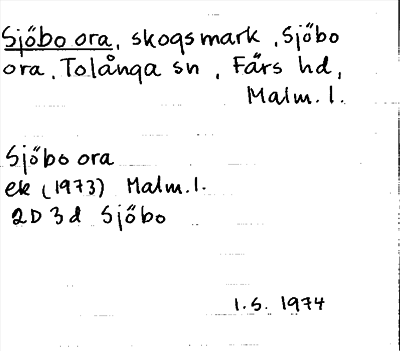 Sjöbo ora, skogsmark, Sjöbo
ora, Tolånga sn, Färs hd,
Malm. l.
Sjöbo ora
ek (1973) Malm. l.
2D 3d Sjöbo
1.S. 1974